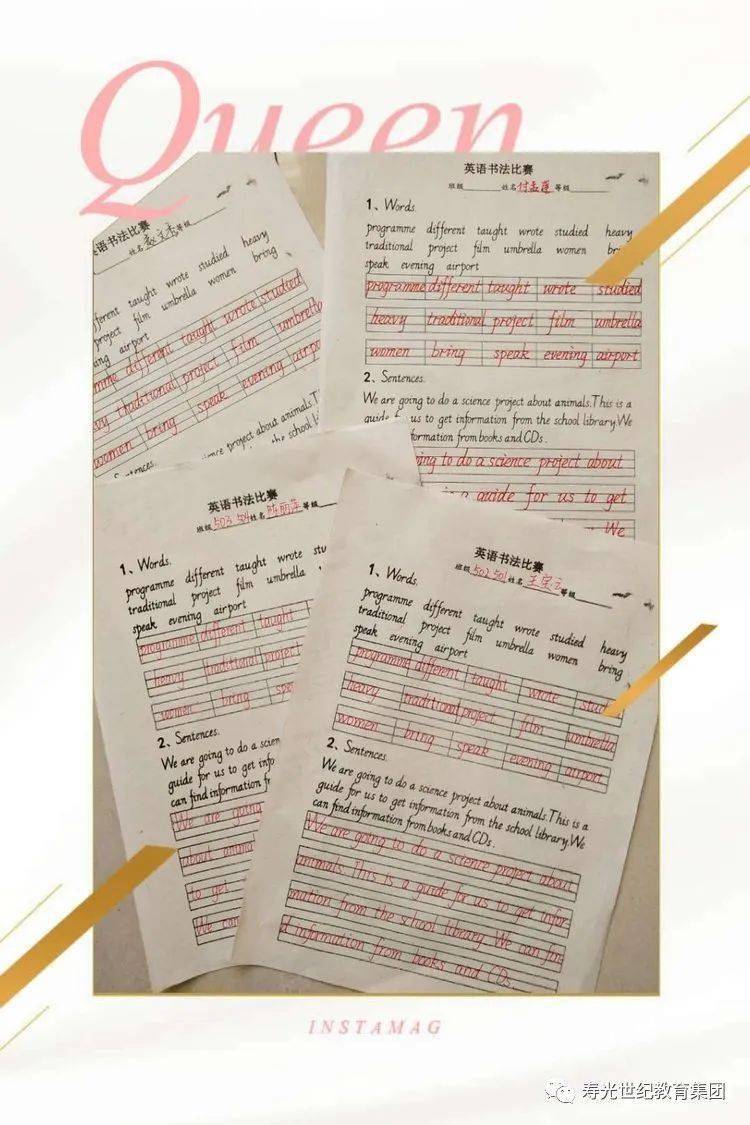 Queen
英语书法比赛
姓名 等级
fferent taught wrote studied heavy
project film umbrella women bring
ang airport
mme different taught wrote studied
vy traditional project film umbrella
women bring speak evening airpo
Sentences.
science project about animals.Th
the school li
英语书法比赛
班级 姓名 付孟莲 等级
1、Words.
programme different taught wrote studied heavy
traditional project film umbrella women bri
speak evening airport
programme different taught wrote studied
heavy traditional project film umbrella
women bring speak evening airport
2、Sentences.
We are going to do a science project about animals.This is a
guide f us to get information from the school library.We
formation from books and CDs.
ing to do a science project about
a guide for us to get
We
英语书法比赛
班级 503 504 姓名 陈丽萍 等级
1、Words.
programme different taught wrote stu
traditional project film umbrella
speak evening airport
programme different taught
heavy traditional project
women bring spe
2、Sentences.
We are going to do a scien
guide for us to get info
can find information fr
We are going
about anima
to get
We can
英语书法比赛
班级 502 501 姓名 王 等级
1、Words.
programme different taught wrote studied heavy
traditional project film umbrella women bring
speak evening airport
programme different taught wrote studi
heavy traditional project film umbrella
women bring speak evening airport
2、Sentences.
We are going to do a science project about animals.This is a
guide for us to get information from the school library.We
can find information from books and CDs.
We are going to do a science project about
animals. This is a guide for us to get infor
mation from the school library. We can fin
d information from books and CDs.
INSTAMAG
寿光世纪教育集团